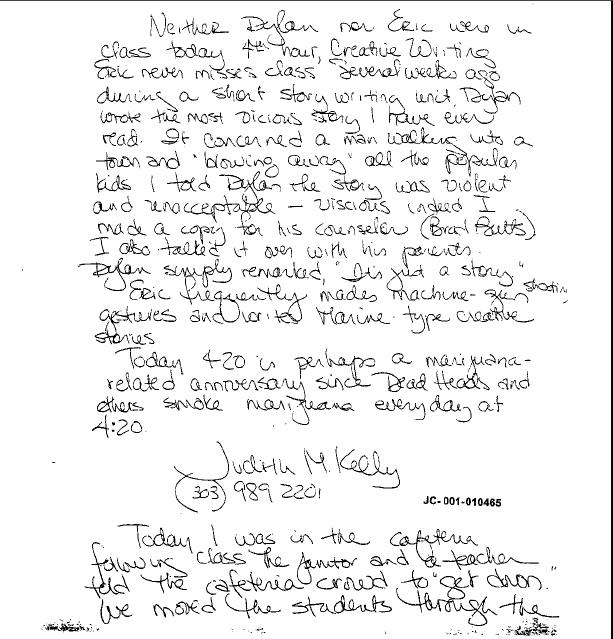 Neither Dylan nor Eric were in
class today 4th hour, Creative Writing
Eric never misses class Several weeks ago
during a short story writing unit, Dylan
wrote the most vicious story I have ever
read. It concerned a man walking into a
town and "blowing away" all the popular
kids I told Dylan the story was violent
and unacceptable — viscious indeed I
made a copy for his counselor (Brad Butts)
I also talked it over with his parents.
Dylan simply remarked, "It's just a story"
Eric frequently mades machine-gun shooting
gestures and writes Marine-type creative
stories
Today 4-20 is perhaps a marijuana-
related anniversary since Dead Heads and
others smoke marijuana everyday at
4:20.
Judith M. Kelly
(303) 989 2201
JC-001-010465
Today I was in the cafeteria
following class The janitor and a teacher
told the cafeteria crowd to "get down."
We moved the students through the